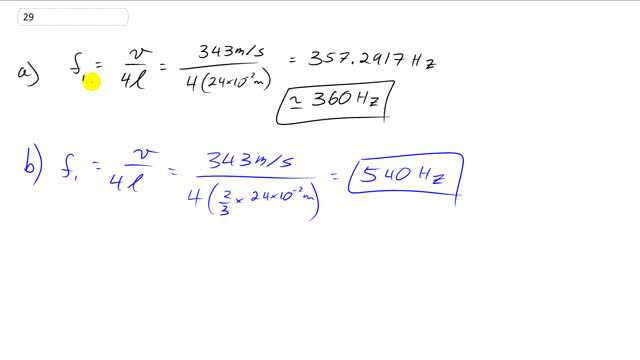 29
a) f₁ = v/4l = 343 m/s / 4(24×10⁻²m) = 357.2917 Hz
≃ 360 Hz
b) f₁ = v/4l = 343 m/s / 4(2/3 × 24×10⁻²m) = 540 Hz